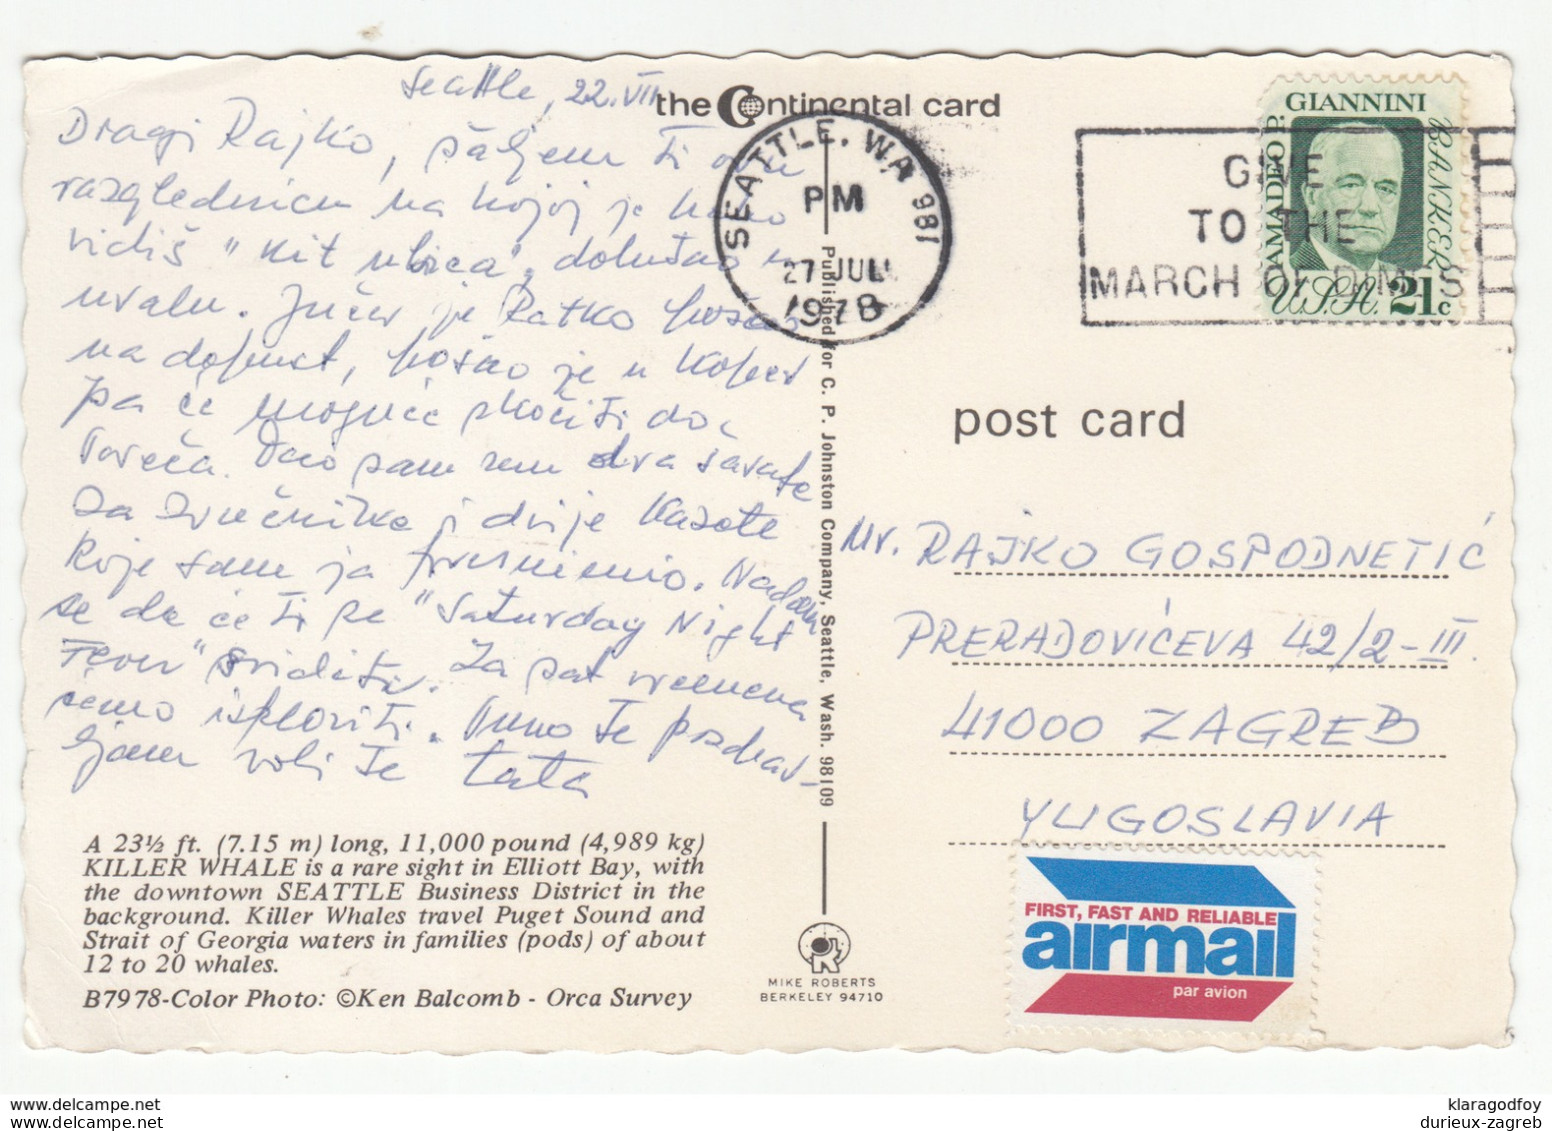 Seattle, 22. VII
Dragi Rajko, šaljem ti ovu
razglednicu na kojoj je kako
vidiš "Kit ubica", dolutao u
uvalu. Jučer je Ratko pošao
na dopust, pošao je u Koper
pa će moguće skočiti do
Poreča. Dao sam mu dva savate
za zvučnike i dvije kazete
koje sam ja presnimio. Nadam
se da će ti se "Saturday Night
Fever" svidjeti. Za par vremena
ćemo isploviti. Puno te pozdrav-
ljam voli te tata
A 23½ ft. (7.15 m) long, 11,000 pound (4,989 kg)
KILLER WHALE is a rare sight in Elliott Bay, with
the downtown SEATTLE Business District in the
background. Killer Whales travel Puget Sound and
Strait of Georgia waters in families (pods) of about
12 to 20 whales.
B7978-Color Photo: ©Ken Balcomb - Orca Survey
the Continental card
SEATTLE, WA 981
PM
27 JUL
1978
Published for C. P. Johnston Company, Seattle, Wash. 98109
MIKE ROBERTS
BERKELEY 94710
GIVE
TO THE
MARCH OF DIMES
AMADEO P.
GIANNINI
BANKER
U.S.A. 21c
post card
Mr. RAJKO GOSPODNETIĆ
PRERADOVIĆEVA 42/2-III.
41000 ZAGREB
YUGOSLAVIA
FIRST, FAST AND RELIABLE
airmail
par avion
klaragodfoy
durieux-zagreb
klaragodfoy
durieux-zagreb